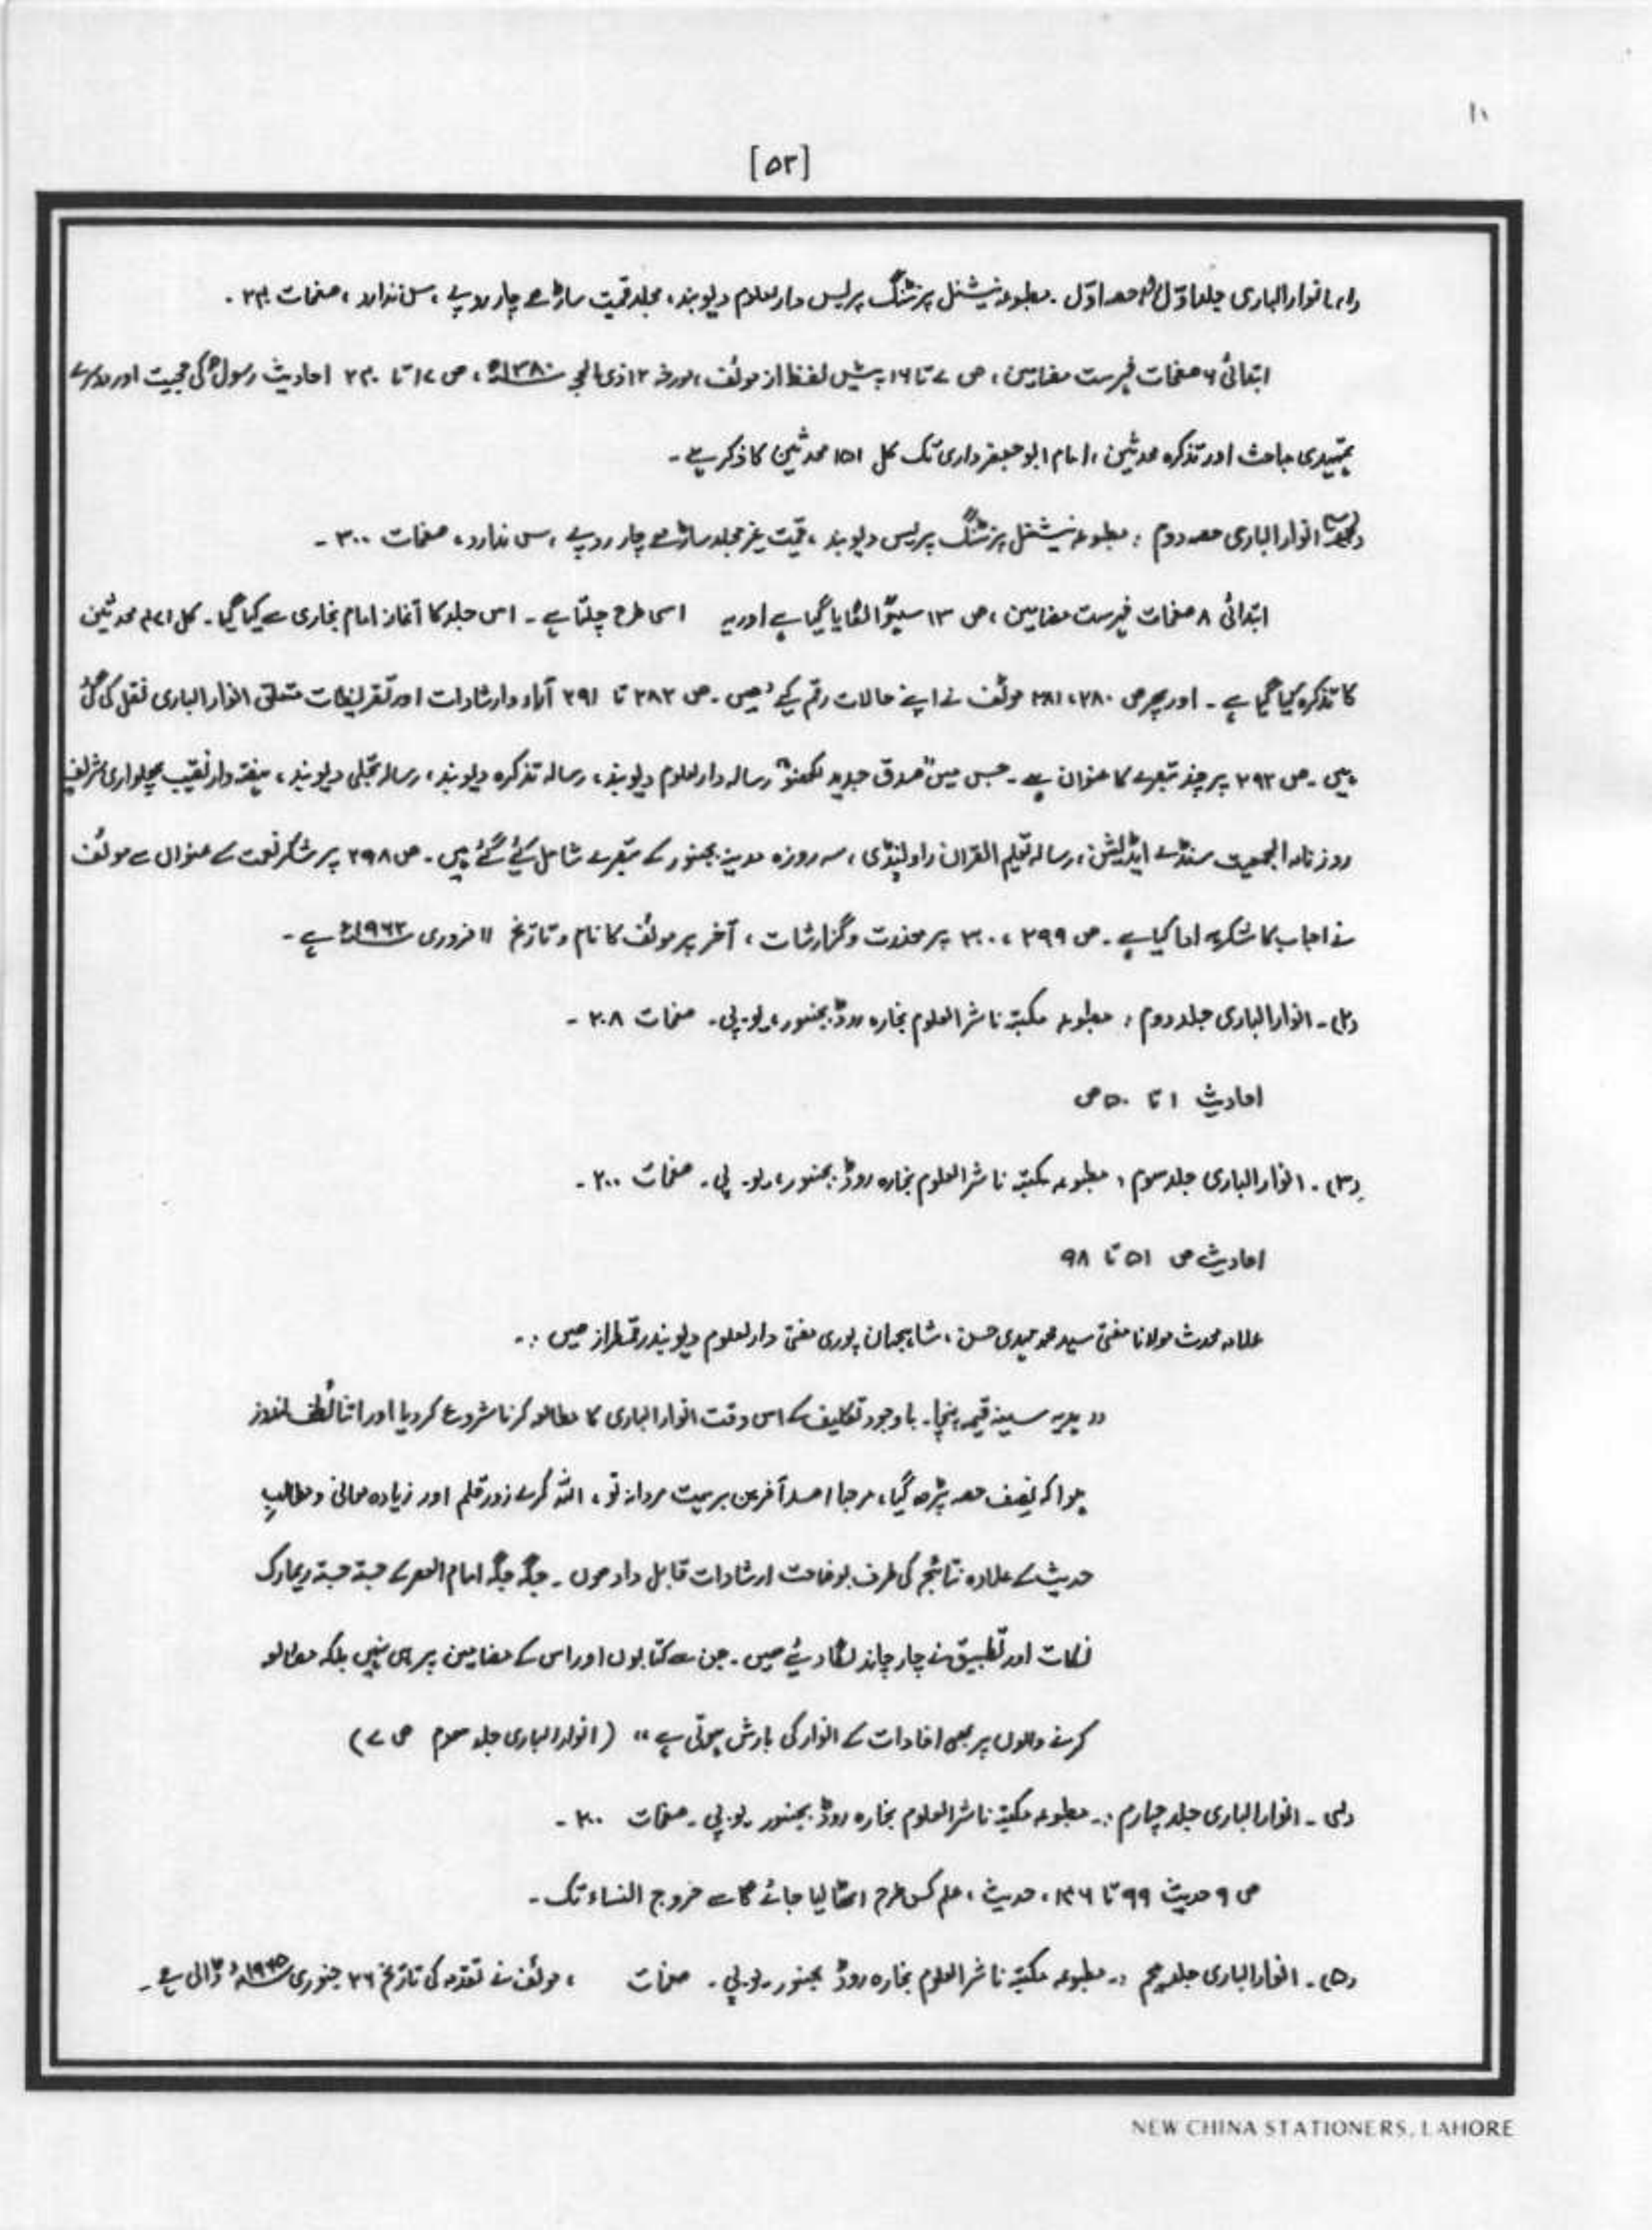 ۱۱
[۵۲]
(۱)۔ انوار الباری جلد اوّل حصہ اوّل ۔ مطبوعہ نیشنل پرنٹنگ پریس دارلعلوم دیوبند، مجلد قیمت ساڑھے چار روپے ، سن ندارد ، صفحات ۲۴۰ ۔
ابتدائی ۶ صفحات فہرست مضامین ، ص ۷ تا ۱۶ پیش لفظ از مولف ، مورخہ ۱۲ ذی الحج ۱۳۸۰ھ ، ص ۱۷ تا ۲۴۰ احادیث رسولؐ کی حجیت اور دوسرے
تمہیدی مباحث اور تذکرہ محدثین ، امام ابو جعفر داری تک کل ۱۵۱ محدثین کا ذکر ہے ۔
انوار الباری حصہ دوم : مطبوعہ نیشنل پرنٹنگ پریس دیوبند ، قیمت غیر مجلد ساڑھے چار روپے ، سن ندارد ، صفحات ۳۰۰ ۔
ابتدائی ۸ صفحات فہرست مضامین ، ص ۱۳ سہوًا لگایا گیا ہے اور یہ اسی طرح چلتا ہے ۔ اس جلد کا آغاز امام بخاری سے کیا گیا ۔ کل محدثین
کا تذکرہ کیا گیا ہے ۔ اور پھر ص ۲۸۰ ، ۲۸۱ مولف نے اپنے حالات رقم کیے ہیں ۔ ص ۲۸۲ تا ۲۹۱ آراء و ارشادات اور تقریظات متعلق انوار الباری نقل کی گئی
ہیں ۔ ص ۲۹۲ پر چند تبصرے کا عنوان ہے ۔ جس میں "صدق جدید لکھنؤ" رسالہ دارلعلوم دیوبند ، رسالہ تذکرہ دیوبند ، رسالہ تجلی دیوبند ، ہفتہ وار نقیب پھلواری شریف
روزنامہ الجمعیت سنڈے ایڈیشن ، رسالہ تعلیم القران راولپنڈی ، سہ روزہ مدینہ بجنور کے تبصرے شامل کیئے گئے ہیں ۔ ص ۲۹۸ پر شکر نعمت کے عنوان سے مولف
نے احباب کا شکریہ ادا کیا ہے ۔ ص ۲۹۹ ، ۳۰۰ پر معذرت و گزارشات ، آخر پر مولف کا نام و تاریخ ۱۱ فروری ۱۹۶۲ء ہے ۔
(۲)۔ انوار الباری جلد دوم : مطبوعہ مکتبہ ناشر العلوم بخارہ روڈ بجنور ، یو۔پی۔ صفحات ۲۰۸ ۔
احادیث ۱ تا ۵۰ ص
(۳)۔ انوار الباری جلد سوم : مطبوعہ مکتبہ ناشر العلوم بخارہ روڈ بجنور ، یو۔ پی۔ صفحات ۲۰۰ ۔
احادیث ص ۵۱ تا ۹۸
علامہ محدث مولانا مفتی سید محمد مہدی حسن ، شاہجہان پوری مفتی دارلعلوم دیوبند رقمطراز ہیں :۔
"ہدیہ سینہ قیمہ پہنچا ۔ باوجود تکلیف کے اس وقت انوار الباری کا مطالعہ کرنا شروع کر دیا اور اتنا لُطف اندوز
ہوا کہ نصف حصہ پڑھ گیا ، مرحبا صد آفرین بر ہمت مردانہ تو ، اللہ کرے زور قلم اور زیادہ معانی و مطالبِ
حدیث کے علاوہ نتائج کی طرف بوضاحت ارشادات قابل داد ہوں ۔ جگہ جگہ امام العصر کے جستہ جستہ ریمارک
نکات اور تطبیق نے چار چاند لگا دیئے ہیں ۔ جن سے کتابوں اور اس کے مضامین پر ہی نہیں بلکہ مطالعہ
کرنے والوں پر بھی افادات کے انوار کی بارش ہوتی ہے" (انوار الباری جلد سوم ص ۷)
(۴)۔ انوار الباری جلد چہارم :۔ مطبوعہ مکتبہ ناشر العلوم بخارہ روڈ بجنور ۔ یو۔پی ۔ صفحات ۲۰۰ ۔
ص ۹ حدیث ۹۹ تا ۱۴۶ ، حدیث ، علم کس طرح اٹھا لیا جائے گا سے خروج النساء تک ۔
(۵)۔ انوار الباری جلد پنجم :۔ مطبوعہ مکتبہ ناشر العلوم بخارہ روڈ بجنور ۔ یو۔پی ۔ صفحات ، مولف نے تقدمہ کی تاریخ ۲۶ جنوری ۱۹۶۵ء ڈالی ہے ۔
NEW CHINA STATIONERS, LAHORE